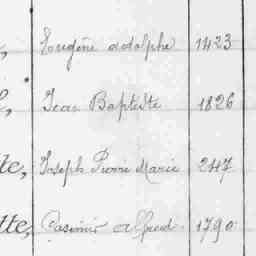 Eugène adolphe 1423
Jean Baptiste 1826
te, Joseph Pierre Marie 2447
tte, Casimir Alfred. 1790